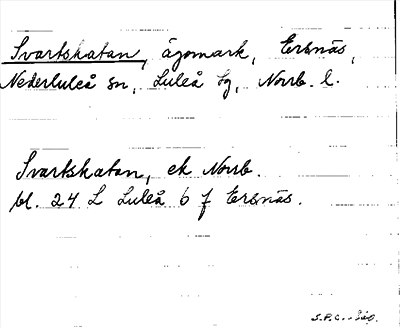 Svartskatan, ägomark, Ersnäs,
Nederluleå sn, Luleå tg, Norrb. l.
Svartskatan, ek Norrb.
bl. 24 L Luleå 6 f Ersnäs.